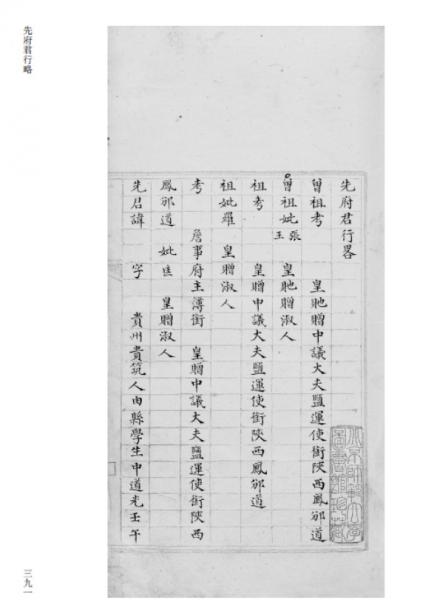 先府君行畧
曾祖考 皇貤贈中議大夫鹽運使銜陝西鳳邠道
曾祖妣張王 皇貤贈淑人
祖考 皇贈中議大夫鹽運使銜陝西鳳邠道
祖妣羅 皇贈淑人
考 詹事府主薄銜 皇贈中議大夫鹽運使銜陝西
鳳邠道 妣 皇贈淑人
先君諱 字 貴州貴筑人由縣學生中道光壬午
先府君行略
三九一